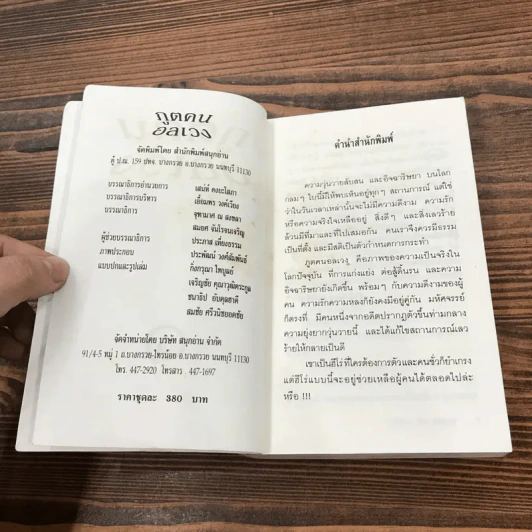 ภูตคน
อลเวง
จัดพิมพ์โดย สำนักพิมพ์สนุกอ่าน
ตู้ ปณ. 159 ปทจ. บางกรวย อ.บางกรวย นนทบุรี 11130
บรรณาธิการอำนวยการ เสน่ห์ คงยะโสภา
บรรณาธิการบริหาร เยี่ยมพร วงค์เวียง
บรรณาธิการ จุฑามาศ ณ สงขลา
สมยศ จันโรจนเจริญ
ผู้ช่วยบรรณาธิการ ประภาส เที่ยงธรรม
ภาพประกอบ ประพัฒน์ วงศ์สัมพันธ์
แบบปกและรูปเล่ม กิ่งกาญจนา ไพบูลย์
เจริญชัย คุณาวุฒิตระกูล
ชนาธิป ยับดุลชาติ
สมชัย ศรีวนิชยอดชัย
จัดจำหน่ายโดย บริษัท สนุกอ่าน จำกัด
91/4-5 หมู่ 1 ถ.บางกรวย-ไทรน้อย อ.บางกรวย นนทบุรี 11130
โทร. 447-2920 โทรสาร . 447-1697
ราคาชุดละ 380 บาท
คำนำสำนักพิมพ์
ความวุ่นวายสับสน และอิจฉาริษยา บนโลก
กลมๆ ใบนี้มีให้พบเห็นอยู่ทุกๆ สถานการณ์ แต่ใช่
ว่าในวันเวลาเหล่านั้นจะไม่มีความดีงาม ความรัก
หรือความจริงใจเหลืออยู่ สิ่งดีๆ และสิ่งเลวร้าย
ล้วนมีที่มาและที่ไปเสมอกัน คนเราจึงควรมีธรรม
เป็นที่ตั้ง และมีสติเป็นตัวกำหนดการกระทำ
ภูตคนอลเวง คือภาพของความเป็นจริงใน
โลกปัจจุบัน ที่การแก่งแย่ง ต่อสู้ดิ้นรน และความ
อิจฉาริษยายังเกิดขึ้น พร้อมๆ กับความดีงามของผู้
คน ความรักความหลงก็ยังคงมีอยู่คู่กัน มหัศจรรย์
ก็ตรงที่ มีคนหนึ่งจากอดีตปรากฏตัวขึ้นท่ามกลาง
ความยุ่งยากวุ่นวายนี้ และได้แก้ไขสถานการณ์เลว
ร้ายให้กลายเป็นดี
เขาเป็นฮีโร่ที่ใครต้องการตัวและคนชั่วก็ยำเกรง
แต่ฮีโร่แบบนี้จะอยู่ช่วยเหลือผู้คนได้ตลอดไปล่ะ
หรือ !!!